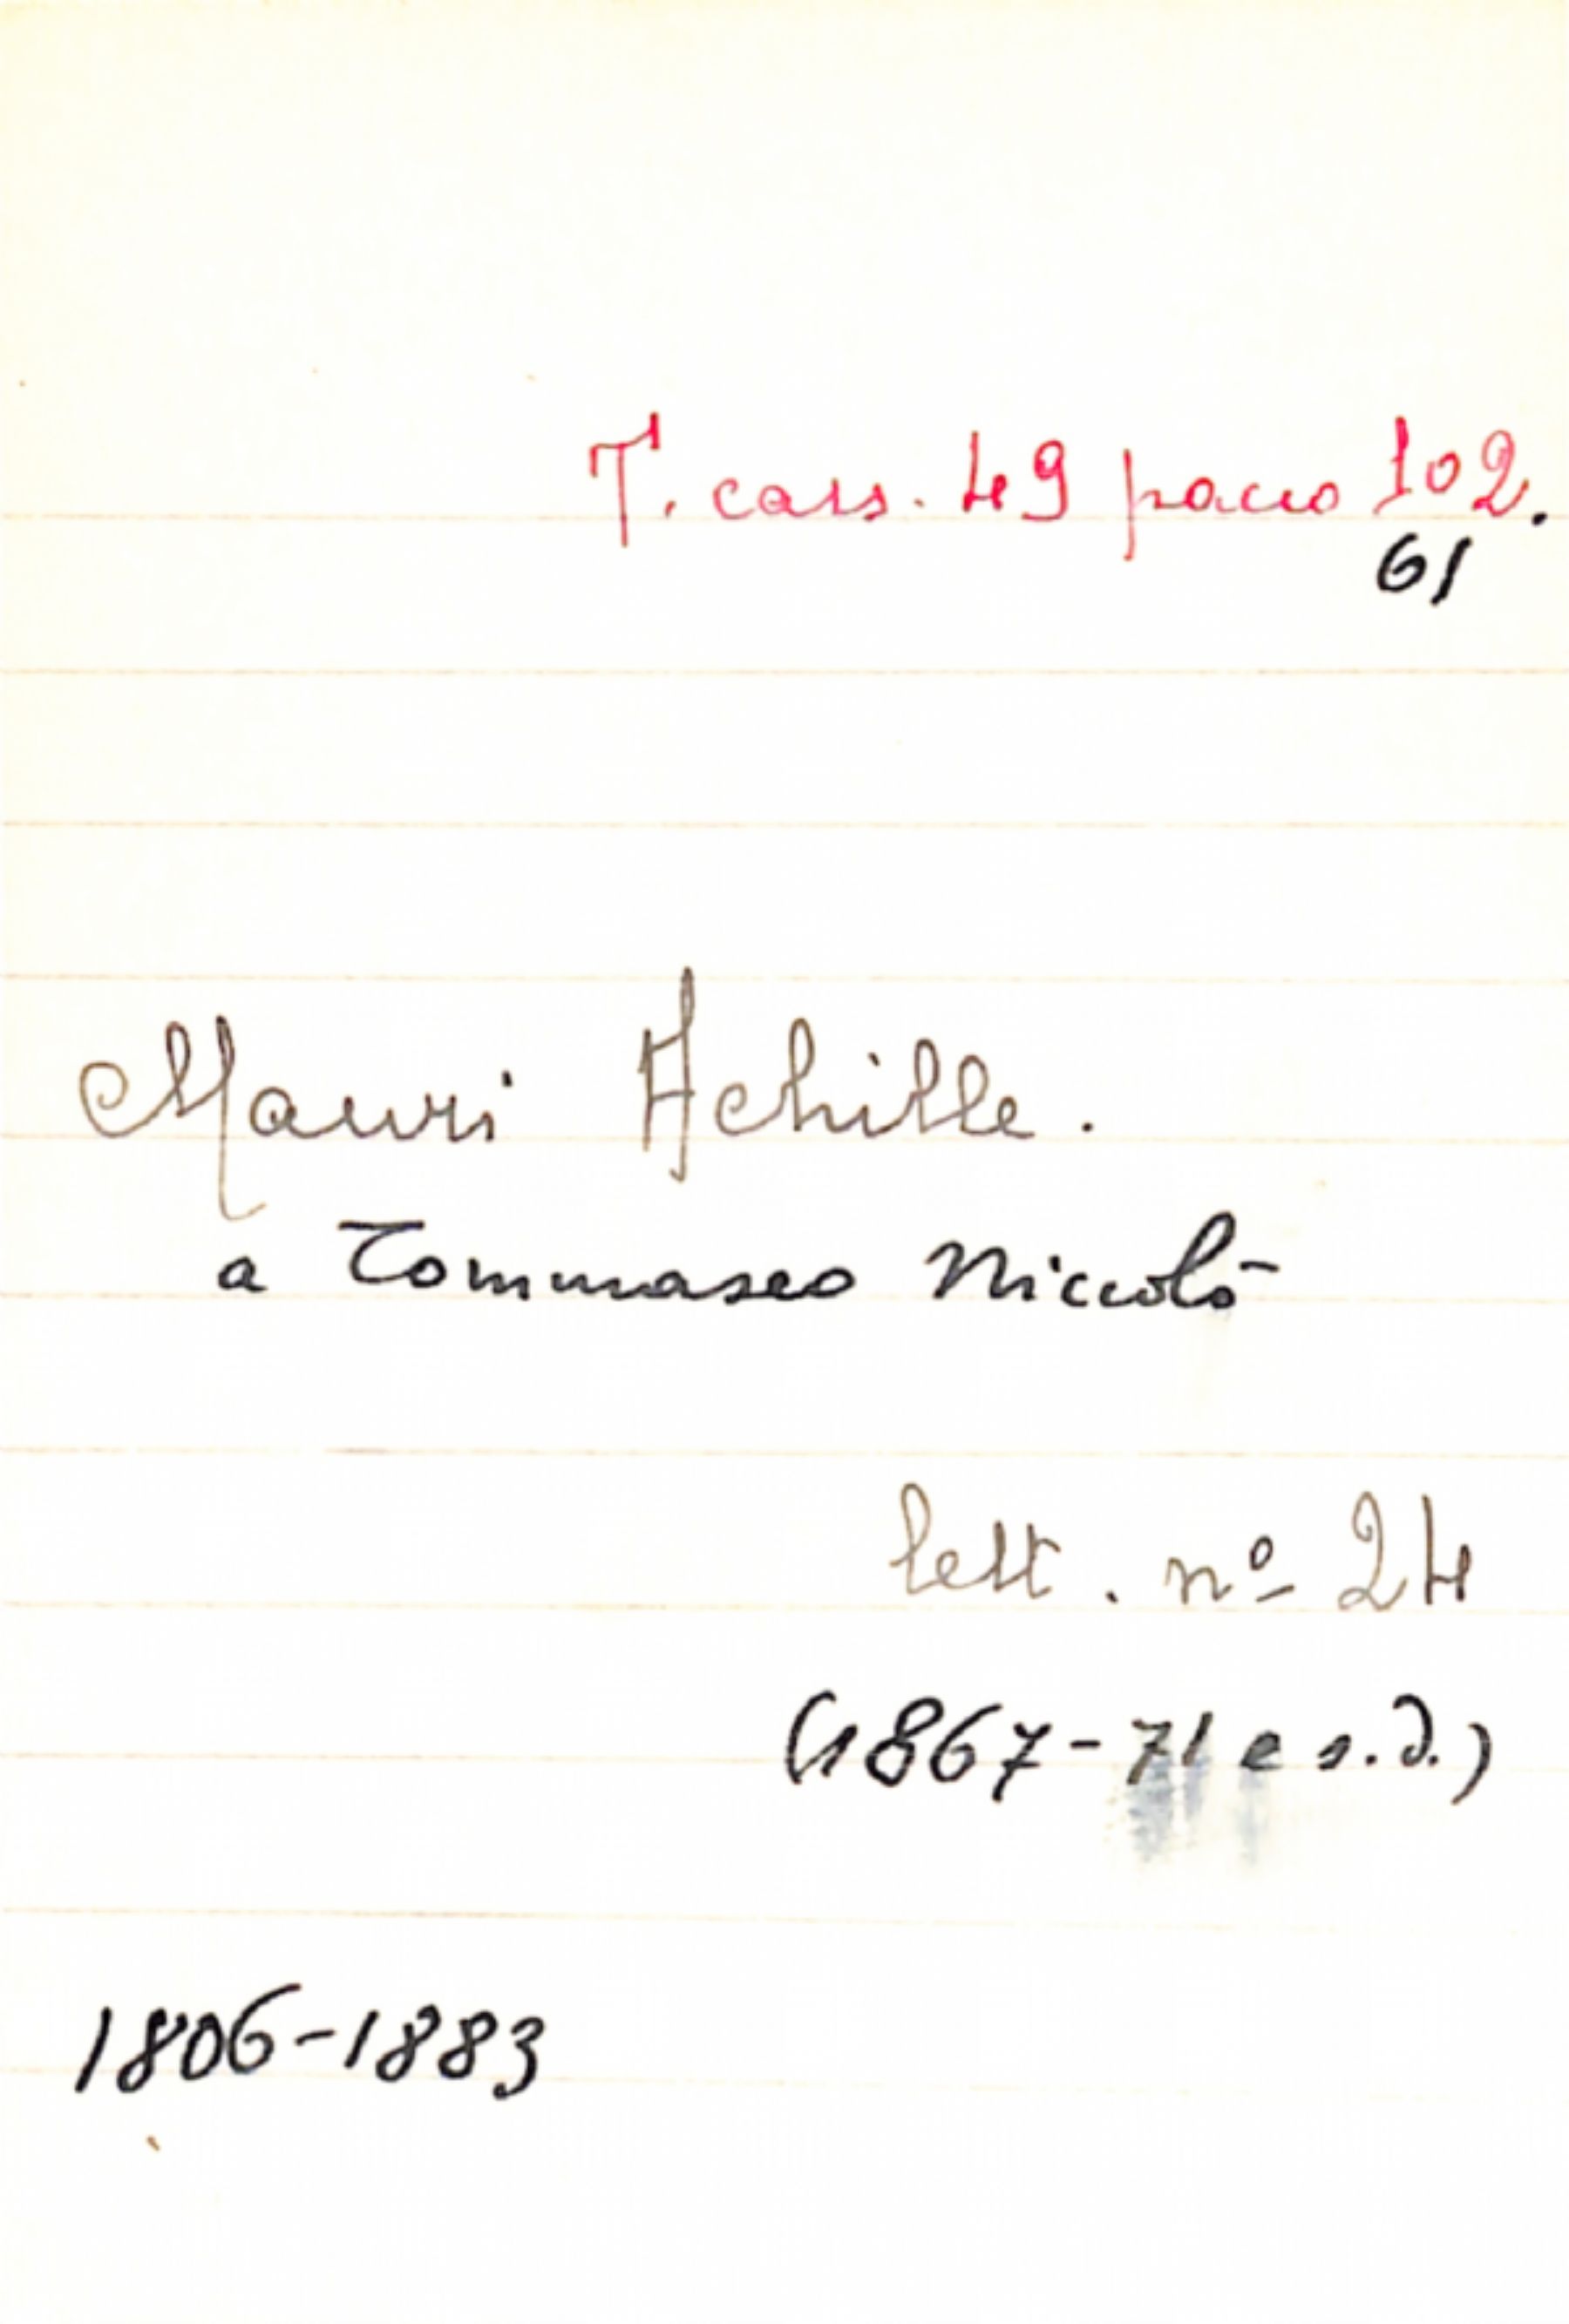 T. cass. 49 pacco 102.
61
Mauri Achille.
a Tommaseo Niccolò
lett. nº 24
(1867-71 e s.d.)
1806-1883